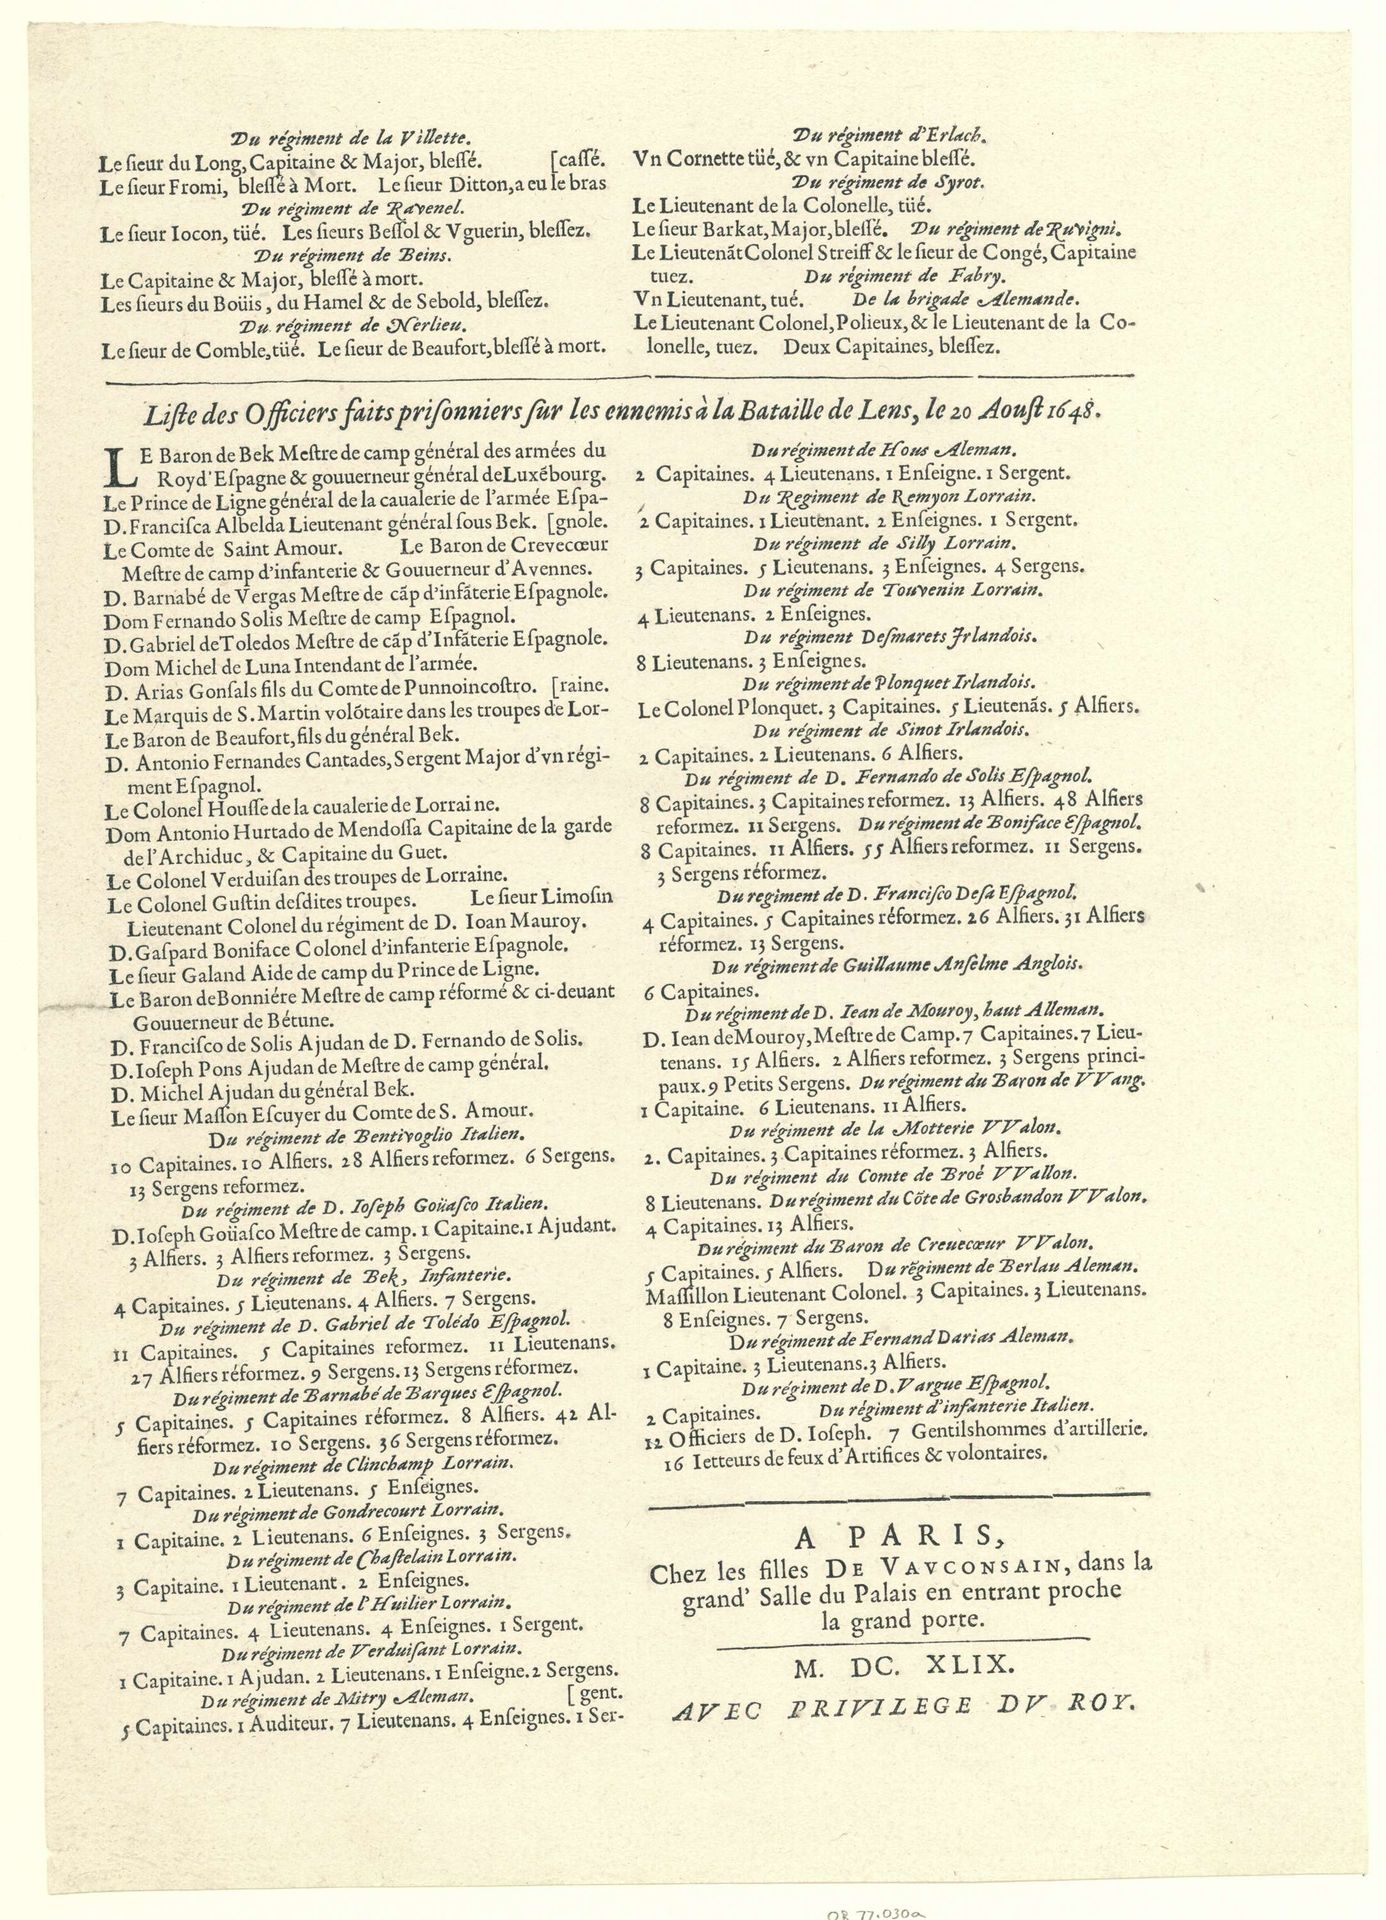 Du régiment de la Villette.
Le ſieur du Long, Capitaine & Major, bleſſé. [caſſé.
Le ſieur Fromi, bleſſé à Mort. Le ſieur Ditton, a eu le bras
Du régiment de Ravenel.
Le ſieur Iocon, tüé. Les ſieurs Beſſol & Vguerin, bleſſez.
Du régiment de Beins.
Le Capitaine & Major, bleſſé à mort.
Les ſieurs du Boüis, du Hamel & de Sebold, bleſſez.
Du régiment de Nerlieu.
Le ſieur de Comble, tüé. Le ſieur de Beaufort, bleſſé à mort.
Du régiment d'Erlach.
Vn Cornette tüé, & vn Capitaine bleſſé.
Du régiment de Syrot.
Le Lieutenant de la Colonelle, tüé.
Le ſieur Barkat, Major, bleſſé. Du régiment de Ruvigni.
Le Lieutenãt Colonel Streiff & le ſieur de Congé, Capitaine
tuez. Du régiment de Fabry.
Vn Lieutenant, tué. De la brigade Alemande.
Le Lieutenant Colonel, Polieux, & le Lieutenant de la Co-
lonelle, tuez. Deux Capitaines, bleſſez.
Liſte des Officiers faits priſonniers ſur les ennemis à la Bataille de Lens, le 20 Aouſt 1648.
LE Baron de Bek Meſtre de camp général des armées du
Roy d'Eſpagne & gouuerneur général de Luxẽbourg.
Le Prince de Ligne général de la caualerie de l'armée Eſpa-
D. Franciſca Albelda Lieutenant général ſous Bek. [gnole.
Le Comte de Saint Amour. Le Baron de Crevecœur
Meſtre de camp d'infanterie & Gouuerneur d'Avennes.
D. Barnabé de Vergas Meſtre de cãp d'infãterie Eſpagnole.
Dom Fernando Solis Meſtre de camp Eſpagnol.
D. Gabriel de Toledos Meſtre de cãp d'Infãterie Eſpagnole.
Dom Michel de Luna Intendant de l'armée.
D. Arias Gonſals fils du Comte de Punnoincoſtro. [raine.
Le Marquis de S. Martin volõtaire dans les troupes de Lor-
Le Baron de Beaufort, fils du général Bek.
D. Antonio Fernandes Cantades, Sergent Major d'vn régi-
ment Eſpagnol.
Le Colonel Houſſe de la caualerie de Lorraine.
Dom Antonio Hurtado de Mendoſſa Capitaine de la garde
de l'Archiduc, & Capitaine du Guet.
Le Colonel Verduiſan des troupes de Lorraine.
Le Colonel Guſtin deſdites troupes. Le ſieur Limoſin
Lieutenant Colonel du régiment de D. Ioan Mauroy.
D. Gaſpard Boniface Colonel d'infanterie Eſpagnole.
Le ſieur Galand Aide de camp du Prince de Ligne.
Le Baron de Bonniére Meſtre de camp réformé & ci-deuant
Gouuerneur de Bétune.
D. Franciſco de Solis Ajudan de D. Fernando de Solis.
D. Ioſeph Pons Ajudan de Meſtre de camp général.
D. Michel Ajudan du général Bek.
Le ſieur Maſſon Eſcuyer du Comte de S. Amour.
Du régiment de Bentivoglio Italien.
10 Capitaines. 10 Alfiers. 28 Alfiers reformez. 6 Sergens.
13 Sergens reformez.
Du régiment de D. Ioſeph Goüaſco Italien.
D. Ioſeph Goüaſco Meſtre de camp. 1 Capitaine. 1 Ajudant.
3 Alfiers. 3 Alfiers reformez. 3 Sergens.
Du régiment de Bek, Infanterie.
4 Capitaines. 5 Lieutenans. 4 Alfiers. 7 Sergens.
Du régiment de D. Gabriel de Tolédo Eſpagnol.
11 Capitaines. 5 Capitaines reformez. 11 Lieutenans.
27 Alfiers réformez. 9 Sergens. 13 Sergens réformez.
Du régiment de Barnabé de Barques Eſpagnol.
5 Capitaines. 5 Capitaines réformez. 8 Alfiers. 42 Al-
fiers réformez. 10 Sergens. 36 Sergens réformez.
Du régiment de Clinchamp Lorrain.
7 Capitaines. 2 Lieutenans. 5 Enſeignes.
Du régiment de Gondrecourt Lorrain.
1 Capitaine. 2 Lieutenans. 6 Enſeignes. 3 Sergens.
Du régiment de Chaſtelain Lorrain.
3 Capitaine. 1 Lieutenant. 2 Enſeignes.
Du régiment de l'Huilier Lorrain.
7 Capitaines. 4 Lieutenans. 4 Enſeignes. 1 Sergent.
Du régiment de Verduiſant Lorrain.
1 Capitaine. 1 Ajudan. 2 Lieutenans. 1 Enſeigne. 2 Sergens.
Du régiment de Mitry Aleman. [gent.
5 Capitaines. 1 Auditeur. 7 Lieutenans. 4 Enſeignes. 1 Ser-
Du régiment de Hous Aleman.
2 Capitaines. 4 Lieutenans. 1 Enſeigne. 1 Sergent.
Du Regiment de Remyon Lorrain.
2 Capitaines. 1 Lieutenant. 2 Enſeignes. 1 Sergent.
Du régiment de Silly Lorrain.
3 Capitaines. 5 Lieutenans. 3 Enſeignes. 4 Sergens.
Du régiment de Touvenin Lorrain.
4 Lieutenans. 2 Enſeignes.
Du régiment Deſmarets Irlandois.
8 Lieutenans. 3 Enſeignes.
Du régiment de Plonquet Irlandois.
Le Colonel Plonquet. 3 Capitaines. 5 Lieutenãs. 5 Alfiers.
Du régiment de Sinot Irlandois.
2 Capitaines. 2 Lieutenans. 6 Alfiers.
Du régiment de D. Fernando de Solis Eſpagnol.
8 Capitaines. 3 Capitaines reformez. 13 Alfiers. 48 Alfiers
reformez. 11 Sergens. Du régiment de Boniface Eſpagnol.
8 Capitaines. 11 Alfiers. 55 Alfiers reformez. 11 Sergens.
3 Sergens réformez.
Du regiment de D. Franciſco Deſa Eſpagnol.
4 Capitaines. 5 Capitaines réformez. 26 Alfiers. 31 Alfiers
réformez. 13 Sergens.
Du régiment de Guillaume Anſelme Anglois.
6 Capitaines.
Du régiment de D. Iean de Mouroy, haut Alleman.
D. Iean de Mouroy, Meſtre de Camp. 7 Capitaines. 7 Lieu-
tenans. 15 Alfiers. 2 Alfiers reformez. 3 Sergens princi-
paux. 9 Petits Sergens. Du régiment du Baron de VVang.
1 Capitaine. 6 Lieutenans. 11 Alfiers.
Du régiment de la Motterie VValon.
2. Capitaines. 3 Capitaines réformez. 3 Alfiers.
Du régiment du Comte de Broé VVallon.
8 Lieutenans. Du régiment du Cõte de Grosbandon VValon.
4 Capitaines. 13 Alfiers.
Du régiment du Baron de Creuecœur VValon.
5 Capitaines. 5 Alfiers. Du régiment de Berlau Aleman.
Maſſillon Lieutenant Colonel. 3 Capitaines. 3 Lieutenans.
8 Enſeignes. 7 Sergens.
Du régiment de Fernand Darias Aleman.
1 Capitaine. 3 Lieutenans. 3 Alfiers.
Du régiment de D. Vargue Eſpagnol.
2 Capitaines. Du régiment d'infanterie Italien.
12 Officiers de D. Ioſeph. 7 Gentilshommes d'artillerie.
16 Ietteurs de feux d'Artifices & volontaires.
A PARIS,
Chez les filles DE VAVCONSAIN, dans la
grand' Salle du Palais en entrant proche
la grand porte.
M. DC. XLIX.
AVEC PRIVILEGE DV ROY.
OB 77.030a